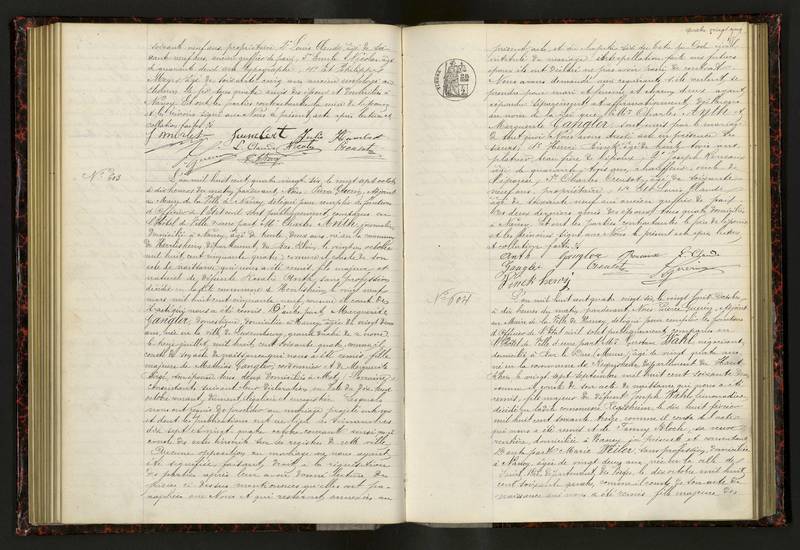 soixante neuf ans, propriétaire, Sr Louis Claude, âgé de
ans, ancien greffier de paix, Sr Emile Nicolas, âgé
de quarante deux ans, typographe, et Philippe
âgé de soixante cinq ans, ancien employé au
chemin de fer, tous quatre amis des époux et domiciliés à
Nancy. Et ont les parties contractantes, la mère de
et les témoins signé avec Nous le présent acte après lecture et
collation faites
Humbert Julie Humbert
L. Claude Nicolas
No 603
L'an mil huit cent quatre vingt six, le vingt sept octobre
à dix heures du matin, pardevant Nous Pierre Guerin, Adjoint
au Maire de la Ville de Nancy, délégué pour remplir les fonctions
d'Officier de l'Etat civil, sont publiquement comparus en
l'Hôtel de Ville d'une part Mr Charles journalier
domicilié à Nancy, âgé de trente deux ans, né en la commune
de département du Bas Rhin, le vingt six octobre
mil huit cent cinquante quatre, comme il conste de son
acte de naissance qui nous a été remis, fils majeur et
naturel de défunte sans profession,
décédée en la dite commune d' le vingt
mars mil huit cent cinquante neuf comme il conste de
l'acte qui nous a été remis. D'autre part Marguerite
Gangler, domestique, domiciliée à Nancy, âgée de vingt deux
ans, née en la ville de Luxembourg, grand duché de ce nom,
le treize juillet mil huit cent soixante quatre, comme il
conste de son acte de naissance qui nous a été remis, fille
majeure de Mathias Gangler, cordonnier, et de Marguerite
sans profession tous deux domiciliés à Metz (Lorraine)
consentants suivant leur déclaration en date du dix huit
octobre courant, dûment légalisée et enregistrée. Lesquels
nous ont requis de procéder au mariage projeté entre eux
et dont les publications ont eu lieu les Dimanches
dix sept et vingt quatre octobre courant ainsi qu'il
conste des actes inscrits sur les registres de cette ville.
Aucune opposition au mariage ne nous ayant
été signifiée, faisant droit à la réquisition
des parties, après leur avoir donné lecture des
pièces ci dessus mentionnées qu'elles ont pa-
raphées avec Nous et qui resteront annexées au
présent acte, et du chapitre six du Code civil,
intitulé du mariage. Interpellation faite aux futurs
époux ils ont déclaré ne pas avoir fait de contrat.
Nous avons demandé aux requérants s'ils veulent se
prendre pour mari et femme, et chacun d'eux ayant
répondu séparément et affirmativement, déclarons
au nom de la Loi que Mr Charles et
Marguerite Gangler sont unis par le mariage.
De tout quoi Nous avons dressé acte en présence de
Henri âgé de trente trois ans
plâtrier, beau frère de l'époux, Sr Joseph
âgé de quarante trois ans, chauffeur, oncle de
l'épouse, Sr Charles âgé de soixante
neuf ans, propriétaire, et Louis Claude
âgé de soixante neuf ans, ancien greffier de paix
les deux derniers amis des époux, tous quatre domiciliés
à Nancy. Et ont les parties contractantes, le père de l'épouse
et les témoins signé avec Nous le présent acte après lecture
et collation faites
Gangler L. Claude
No 604
L'an mil huit cent quatre vingt six, le vingt huit Octobre
à dix heures du matin, pardevant Nous Pierre Guerin, Adjoint
au Maire de la Ville de Nancy, délégué pour remplir les fonctions
d'Officier de l'Etat civil, sont publiquement comparus en
l'Hôtel de Ville d'une part Mr Wahl, négociant,
domicilié à Bar le Duc (Meuse), âgé de vingt quatre ans,
né en la commune de Regisheim, département du Haut
Rhin, le vingt sept septembre mil huit cent soixante deux
comme il conste de son acte de naissance qui nous a été
remis, fils majeur de défunt Joseph Wahl,
décédé en ladite commune de Regisheim, le dix huit février
mil huit cent soixante treize, comme il conste de l'acte
qui nous a été remis et de Fanny Bloch, sa veuve
rentière, domiciliée à Nancy, ici présente et consentante
D'autre part Marie Weiller, sans profession, domiciliée
à Nancy, âgée de vingt deux ans, née en la ville de
département de le dix octobre mil huit
cent soixante quatre, comme il conste de son acte de
naissance qui nous a été remis, fille majeure de